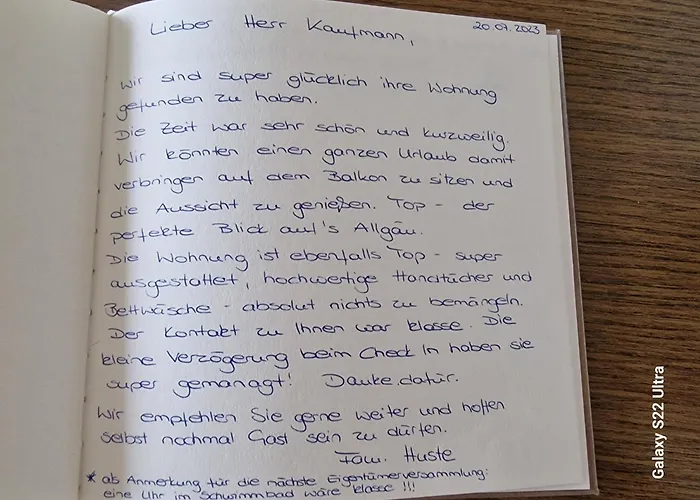 Lieber Herr Kaufmann,
20.07.2023
wir sind super glücklich ihre Wohnung
gefunden zu haben.
Die Zeit war sehr schön und kurzweilig.
Wir könnten einen ganzen Urlaub damit
verbringen auf dem Balkon zu sitzen und
die Aussicht zu genießen. Top - der
perfekte Blick auf's Allgäu.
Die Wohnung ist ebenfalls Top - super
ausgestattet, hochwertige Handtücher und
Bettwäsche - absolut nichts zu bemängeln.
Der Kontakt zu Ihnen war klasse. Die
kleine Verzögerung beim Check In haben sie
super gemanagt! Danke dafür.
Wir empfehlen Sie gerne weiter und hoffen
selbst nochmal Gast sein zu dürfen.
Fam. Huste
* ab Anmerkung für die nächste Eigentümerversammlung:
eine Uhr im Schwimmbad wäre klasse !!!
Galaxy S22 Ultra